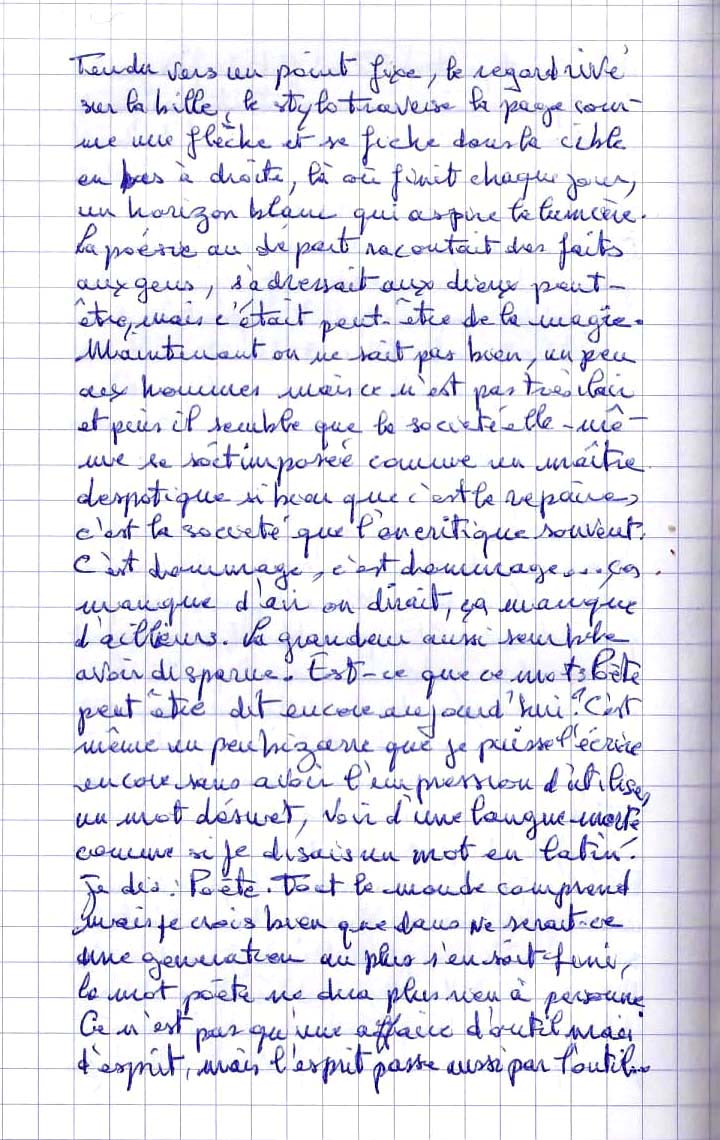 Tendu vers un point fixe, le regard rivé
sur la bille, le stylo traverse la page com-
me une flèche et se fiche dans la cible
en bas à droite, là où finit chaque jour,
un horizon blanc qui aspire la lumière.
La poésie au départ racontait des faits
aux gens, s'adressait aux dieux peut-
être, mais c'était peut-être de la magie.
Maintenant on ne sait pas bien, un peu
aux hommes mais ce n'est pas très clair
et puis il semble que la société elle-mê-
me se soit imposée comme un maître
despotique si bien que c'est le repaire,
c'est la société que l'on critique souvent.
C'est dommage, c'est dommage... ça
manque d'air on dirait, ça manque
d'ailleurs. La grandeur aussi semble
avoir disparue. Est-ce que ce mot Poète
peut être dit encore aujourd'hui? C'est
même un peu bizarre que je puisse l'écrire
encore sans avoir l'impression d'utiliser
un mot désuet, voir d'une langue morte
comme si je disais un mot en latin.
Je dis: Poète. Tout le monde comprend
mais je crois bien que dans ne serait-ce
une génération au plus s'en soit fini,
le mot poète ne dira plus rien à personne
Ce n'est pas qu'une affaire d'outil mais
d'esprit, mais l'esprit passe aussi par l'outil...